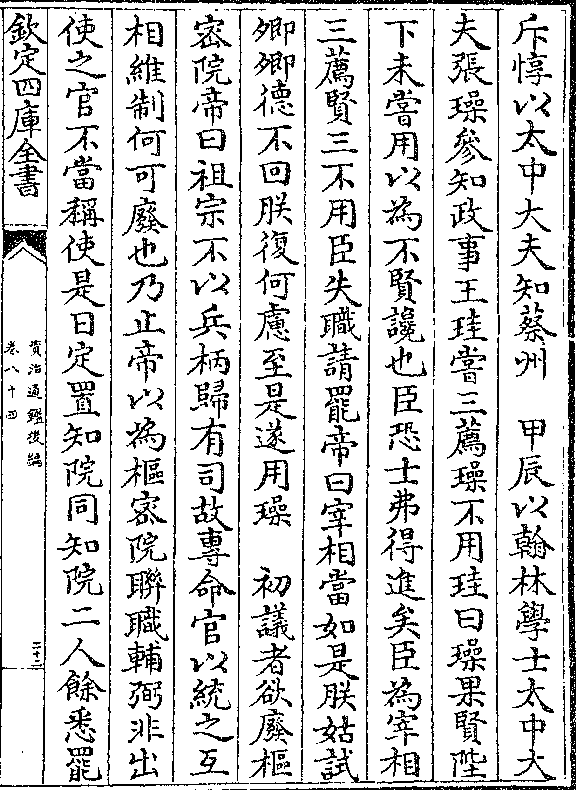 斥惇以太中大夫知蔡州　甲辰以翰林學士太中大
夫張璪參知政事王珪嘗三薦璪不用珪曰璪果賢陛
下未嘗用以為不賢讒也臣恐士弗得進矣臣為宰相
三薦賢三不用臣失職請罷帝曰宰相當如是朕姑試
卿卿德不回朕復何慮至是遂用璪　初議者欲廢樞
密院帝曰祖宗不以兵柄歸有司故專命官以統之互
相維制何可廢也乃止帝以為樞密院聯職輔弼非出
使之官不當稱使是日定置知院同知院二人餘悉罷
欽定四庫全書
資治通鑑後編
卷八十四
三十三